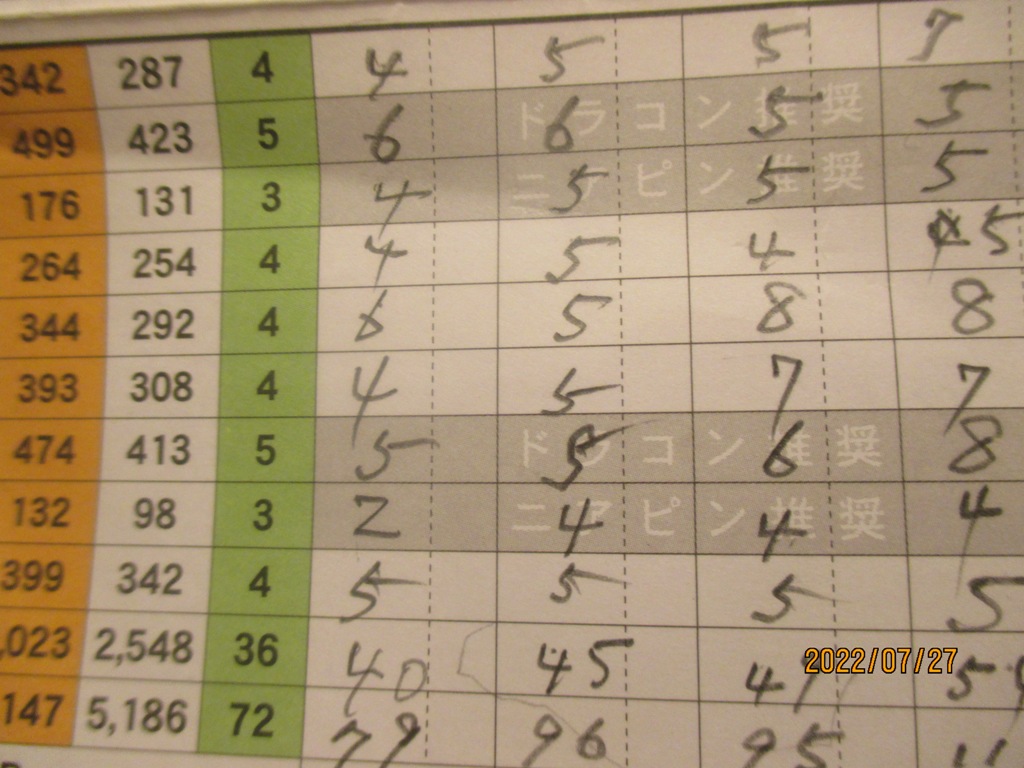 342 287 4 4 5 5 7
499 423 5 6 6 5 5 ドラコン推奨
176 131 3 4 5 5 5 ニアピン推奨
264 254 4 4 5 4 5
344 292 4 6 5 8 8
393 308 4 4 5 7 7
474 413 5 5 5 6 8 ドラコン推奨
132 98 3 2 4 4 4 ニアピン推奨
399 342 4 5 5 5 5
,023 2,548 36 40 45
2022/07/27
147 5,186 72 79 96 95